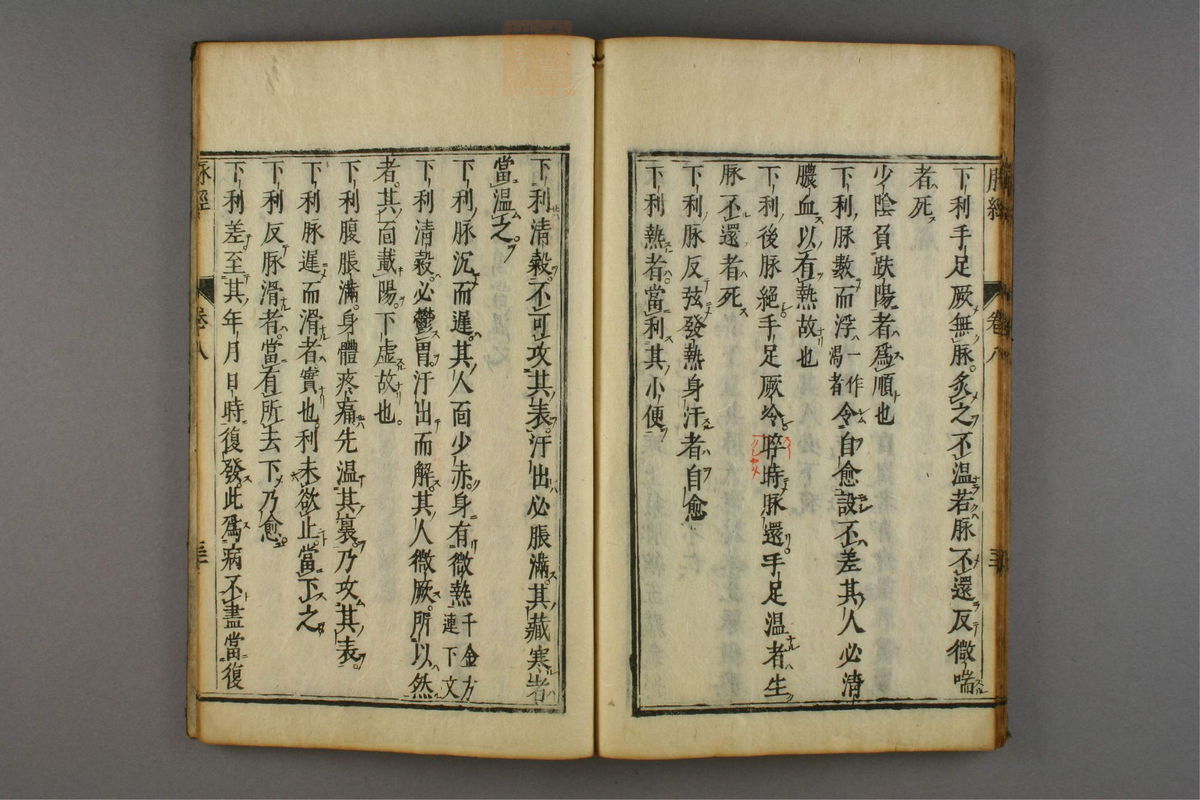 脉經
卷八
下利手足厥無脉灸之不温若脉不還反微喘
者死
少陰負趺陽者爲順也
下利脉數而浮一作渴者令自愈設不差其人必清
膿血以有熱故也
下利後脉絶手足厥冷晬時脉還手足温者生
脉不還者死
下利脉反弦發熱身汗者自愈
下利熱者當利其小便
下利清穀不可攻其表汗出必脹滿其藏寒者
當温之
下利脉沉而遲其人面少赤身有微熱千金方連下文
下利清穀必鬱冒汗出而解其人微厥所以然
者其面戴陽下虚故也
下利腹脹滿身體疼痛先温其裏乃攻其表
下利脉遲而滑者實也利未欲止當下之
下利反脉滑者當有所去下乃愈
下利差至其年月日時復發此爲病不盡當復
脉經
卷八